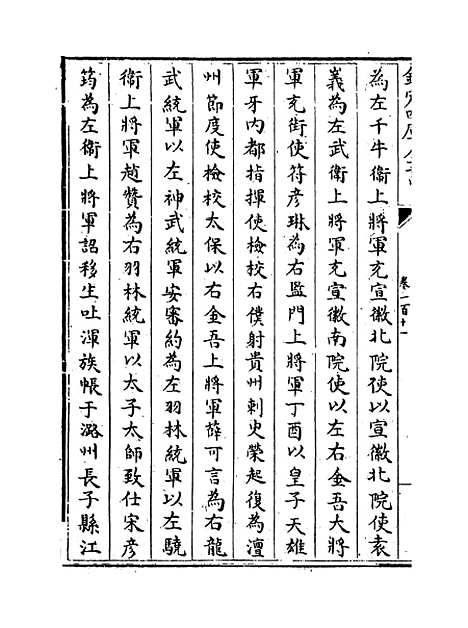 欽定四庫全書
卷一百十一
為左千牛衛上將軍充宣徽北院使以宣徽北院使袁
義為左武衛上將軍充宣徽南院使以左右金吾大將
軍充街使符彦琳為右監門上將軍丁酉以皇子天雄
軍牙内都指揮使檢校右僕射貴州刺史榮起復為澶
州節度使檢校太保以右金吾上將軍薛可言為右龍
武統軍以左神武統軍安審約為左羽林統軍以左驍
衛上將軍趙贊為右羽林統軍以太子太師致仕宋彦
筠為左衛上將軍詔移生吐渾族帳于潞州長子縣江